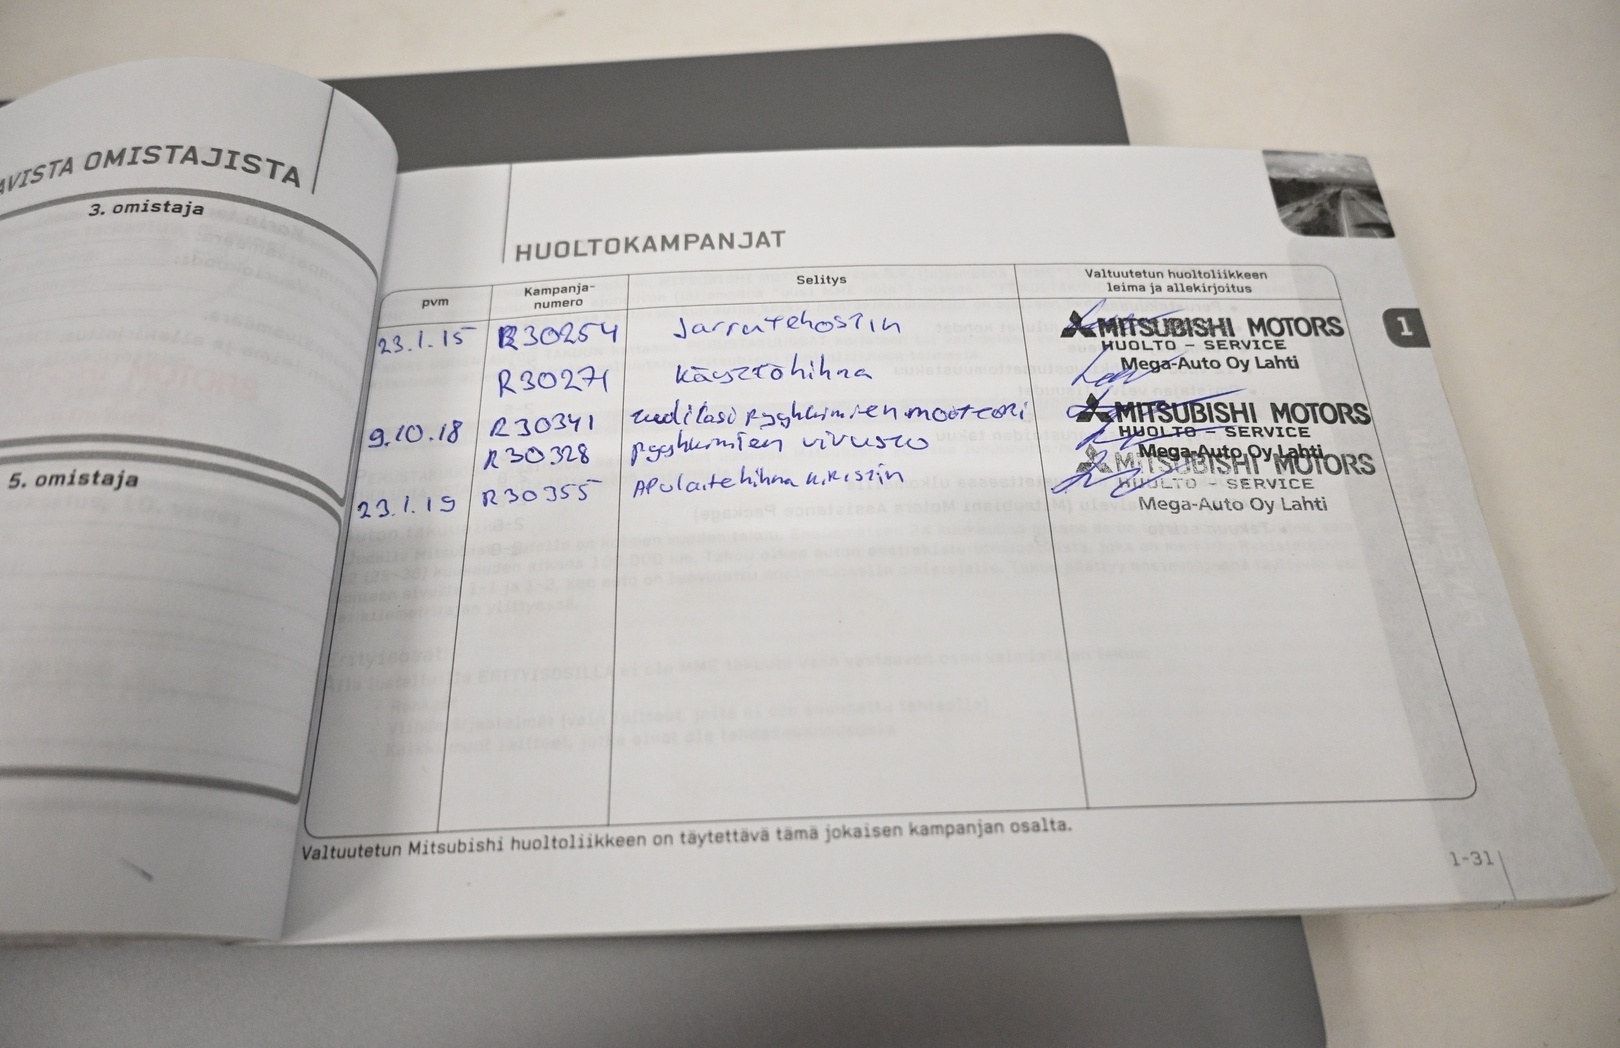 AVISTA OMISTAJISTA
3. omistaja
5. omistaja
HUOLTOKAMPANJAT
pvm
Kampanja-
numero
Selitys
Valtuutetun huoltoliikkeen
leima ja allekirjoitus
23.1.15 R30254 Jarrutehostin
R30271 Käyttöhihna
9.10.18 R30341 tuulilasi pyyhkimien moottori
R30328 pyyhkimien vivusto
23.1.19 R30355 Apulaitehihna kiristin
MITSUBISHI MOTORS
HUOLTO - SERVICE
Mega-Auto Oy Lahti
MITSUBISHI MOTORS
HUOLTO - SERVICE
Mega-Auto Oy Lahti
MITSUBISHI MOTORS
HUOLTO - SERVICE
Mega-Auto Oy Lahti
1
Valtuutetun Mitsubishi huoltoliikkeen on täytettävä tämä jokaisen kampanjan osalta.
1-31